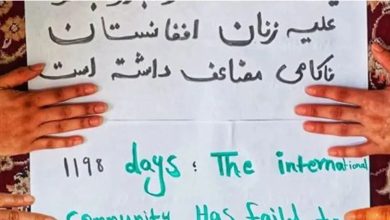 علیه زنان افغانستان
ناکامی مضاعف داشته است
1198 days: The international
community Has faild to